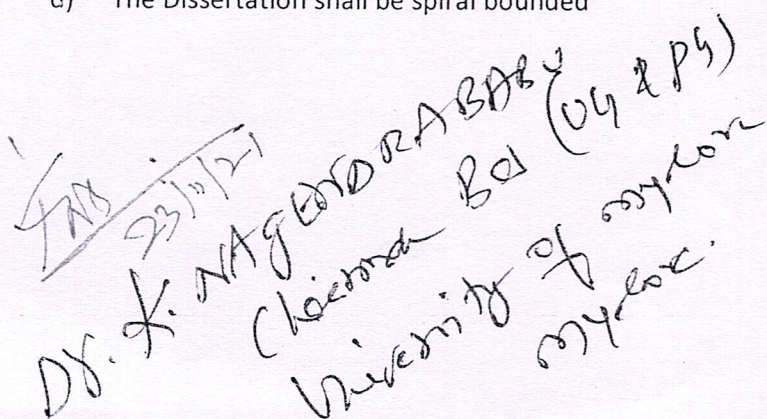 d) The Dissertation shall be spiral bounded
23/11/21
Dr. K. NAGENDRABABU
Chairman BOS (UG & PG)
University of Mysore
Mysore.